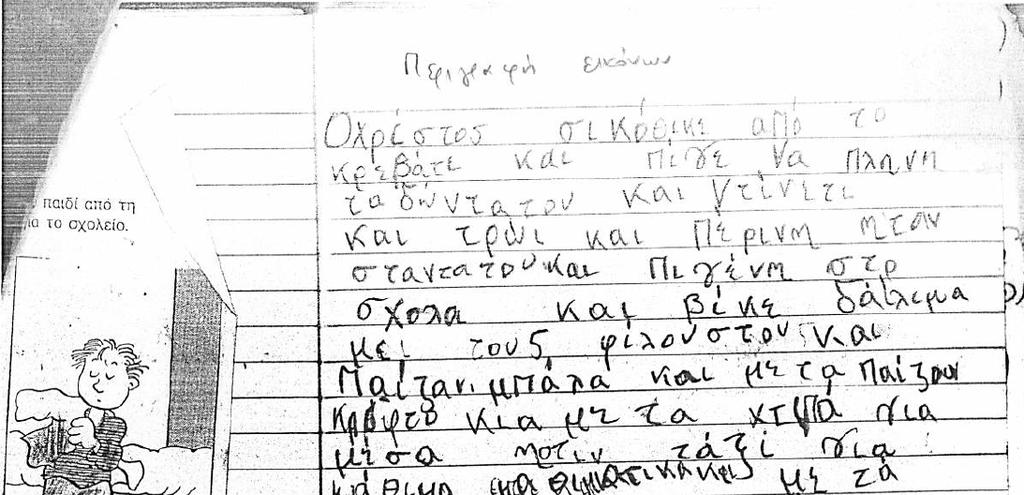 παιδί από τη
ια το σχολείο.
Περιγραφή εικόνων
Οχρέστος σικόθικε από το
κρεβάτε και πίγε να πληνη
ταδόντατου και ντίνιτι
και τρώι και πέρινη μταν
σταντατουκαι πιγένη στο
σχολα και βίκε διάλεμα
μει τους φίλουστου και
Παίζαν μπάλα και μετα παίζουν
κρύφτο κια με τα χτιπά για
μέσα μστιν τάξί για
μαθιματικακαι με τα